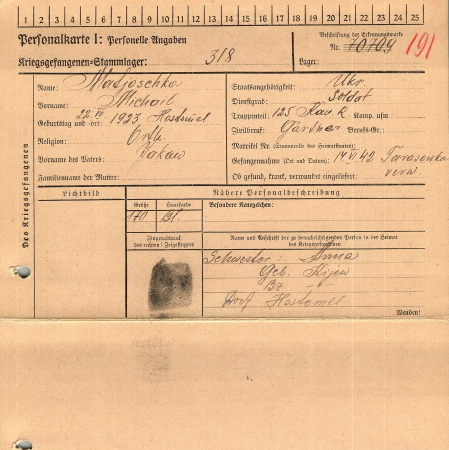 1 2 3 4 5 6 7 8 9 10 11 12 13 14 15 16 17 18 19 20 21 22 23 24 25
Personalkarte I: Personelle Angaben
Kriegsgefangenen-Stammlager: 318
Beschriftung der Erkennungsmarke
Nr. 70709 191
Lager:
Des Kriegsgefangenen
Name: Madjoschko
Vorname: Michail
Geburtstag und -ort: 22. 1923 Hostomel
Religion: Orth.
Vorname des Vaters: Jakow
Familienname der Mutter:
Staatsangehörigkeit: Ukr.
Dienstgrad: Soldat
Truppenteil: 125 Kav. R Komp. usw.
Zivilberuf: Gärtner Berufs-Gr.:
Matrikel Nr. (Stammrolle des Heimatstaates):
Gefangennahme (Ort und Datum): 14 VI 42 Tarasowka
Ob gesund, krank, verwundet eingeliefert: verw.
Lichtbild
Nähere Personalbeschreibung
Größe Haarfarbe
170 bl.
Besondere Kennzeichen:
Fingerabdruck
des rechten! Zeigefingers
Name und Anschrift der zu benachrichtigenden Person in der Heimat
des Kriegsgefangenen
Schwester: Anna
Geb. Kijew
Bz. -"-
Dorf Hostomel
Wenden!